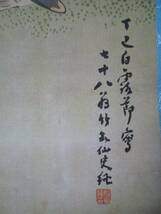 丁巳白露節寫
七十八翁竹外仙史純